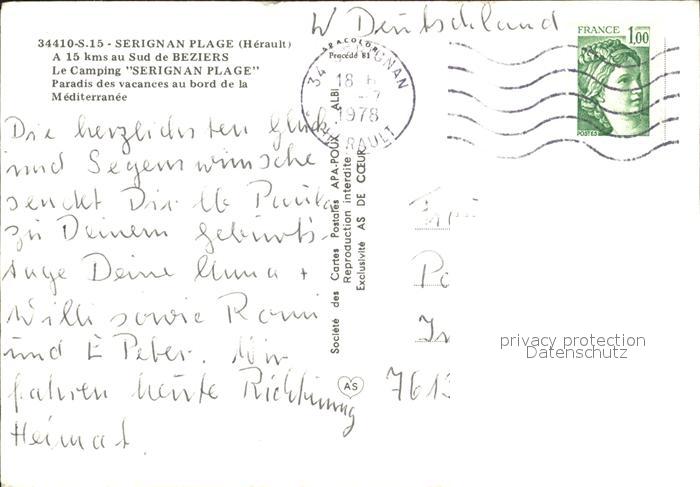 W Deutschland
34410-S.15 - SERIGNAN PLAGE (Hérault)
A 15 kms au Sud de BEZIERS
Le Camping "SERIGNAN PLAGE"
Paradis des vacances au bord de la
Méditerranée
APACOLOR
Procédé 81
34 SERIGNAN
18 H
7
1978
HERAULT
FRANCE
1,00
POSTES
Die herzlichsten Glück
und Segenswünsche
senkt Dir lb Paula
zu Deinem Geburts-
tage Deine Anna +
Willi sowie Romi
und E Peter. Wir
fahren heute Richtung
Heimat.
Société des Cartes Postales APA-POUX - ALBI
Reproduction interdite
Exclusivité AS DE CŒUR
AS
7613
privacy protection
Datenschutz